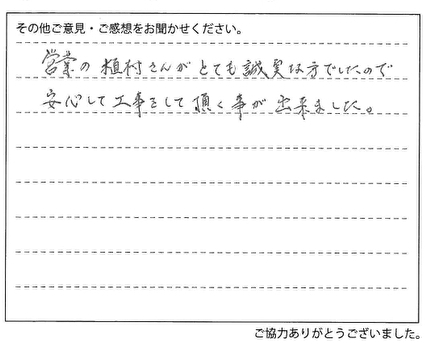 その他ご意見・ご感想をお聞かせください。
営業の植村さんがとても誠実な方でしたので
安心して工事をして頂く事が出来ました。
ご協力ありがとうございました。